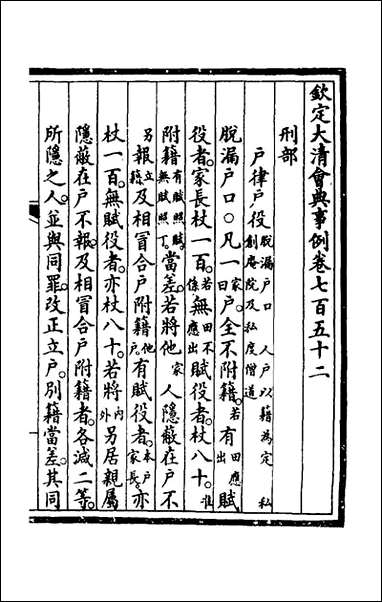 欽定大清會典事例卷七百五十二
刑部
戶律戶役 脫漏戶口 人戶以籍為定 私創庵院及私度僧道
脫漏戶口○凡一家曰戶全不附籍。若有田應出賦
役者。家長杖一百。若係田不應出無賦役者。杖八十。准
附籍有賦照賦無賦照丁當差。若將他家人隱蔽在戶不
另報立籍及相冒合戶附籍。他戶有賦役者。本戶家長亦
杖一百。無賦役者。亦杖八十。若將內外另居親屬
隱蔽在戶不報。及相冒合戶附籍者。各減二等。
所隱之人。並與同罪。改正立戶。別籍當差。其同